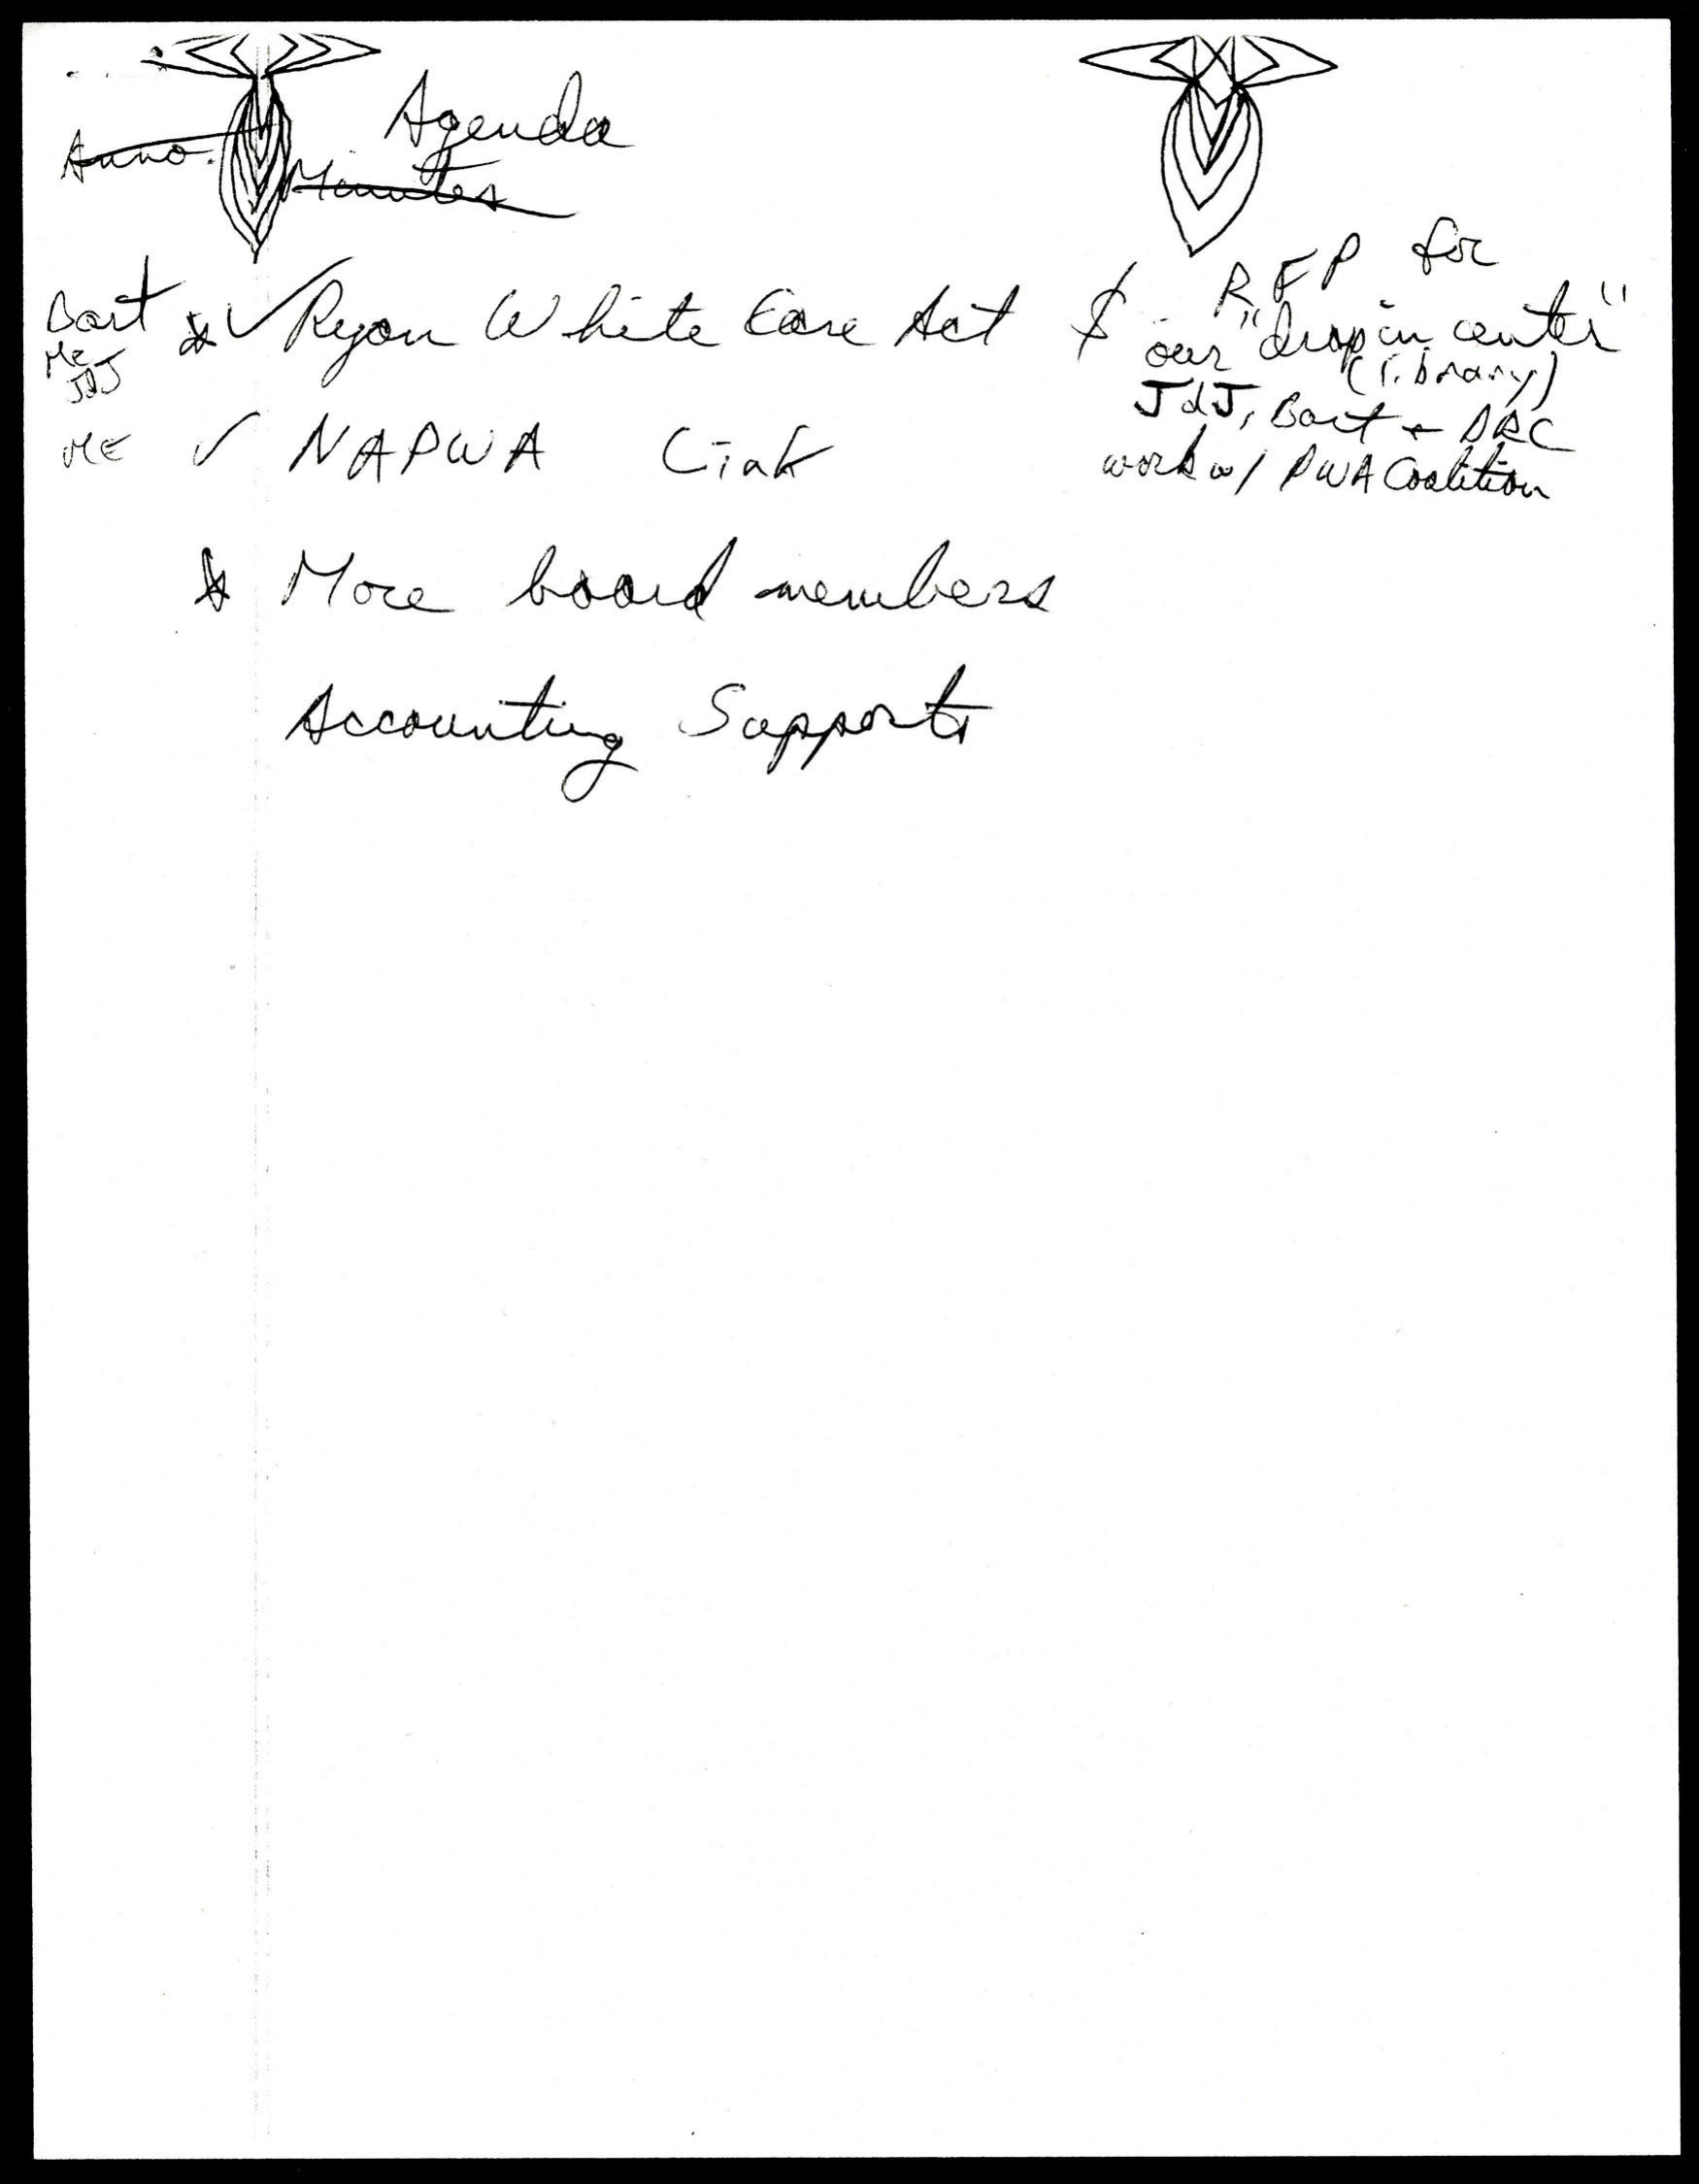 Agenda
Anno.
Minutes
Bart ✓ Ryan White Care Act $
Me
JDJ
RFP for
our "drop in center"
(library)
JdJ, Bart + DRC
work w/ PWA Coalition
ME ✓ NAPWA
More board members
Accounting Support